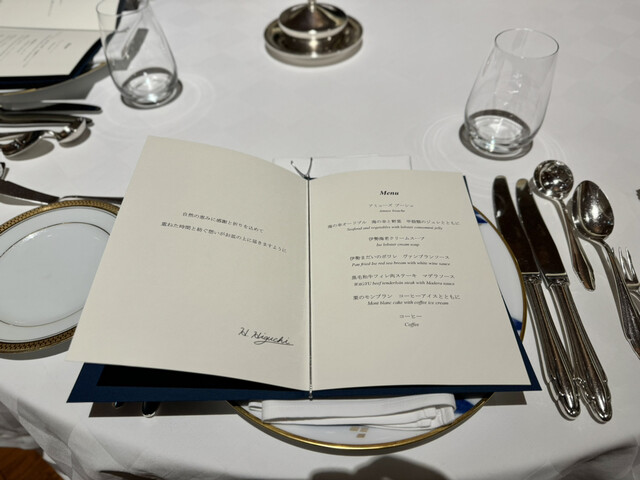 自然の恵みに感謝と祈りを込めて
重ねた時間と紡ぐ想いがお皿の上に届きますように
H Higuchi
Menu
アミューズ ブーシュ
Amuse bouche
海の幸オードブル 海の幸と野菜 のジュレとともに
Seafood and vegetables with lobster consommé jelly
伊勢海老クリームスープ
Ise lobster cream soup
伊勢まだいのポワレ ヴァンブランソース
Pan fried Ise red sea bream with white wine sauce
黒毛和牛フィレ肉ステーキ マデラソース
WAGYU beef tenderloin steak with Madeira sauce
栗のモンブラン コーヒーアイスとともに
Mont blanc cake with coffee ice cream
コーヒー
Coffee